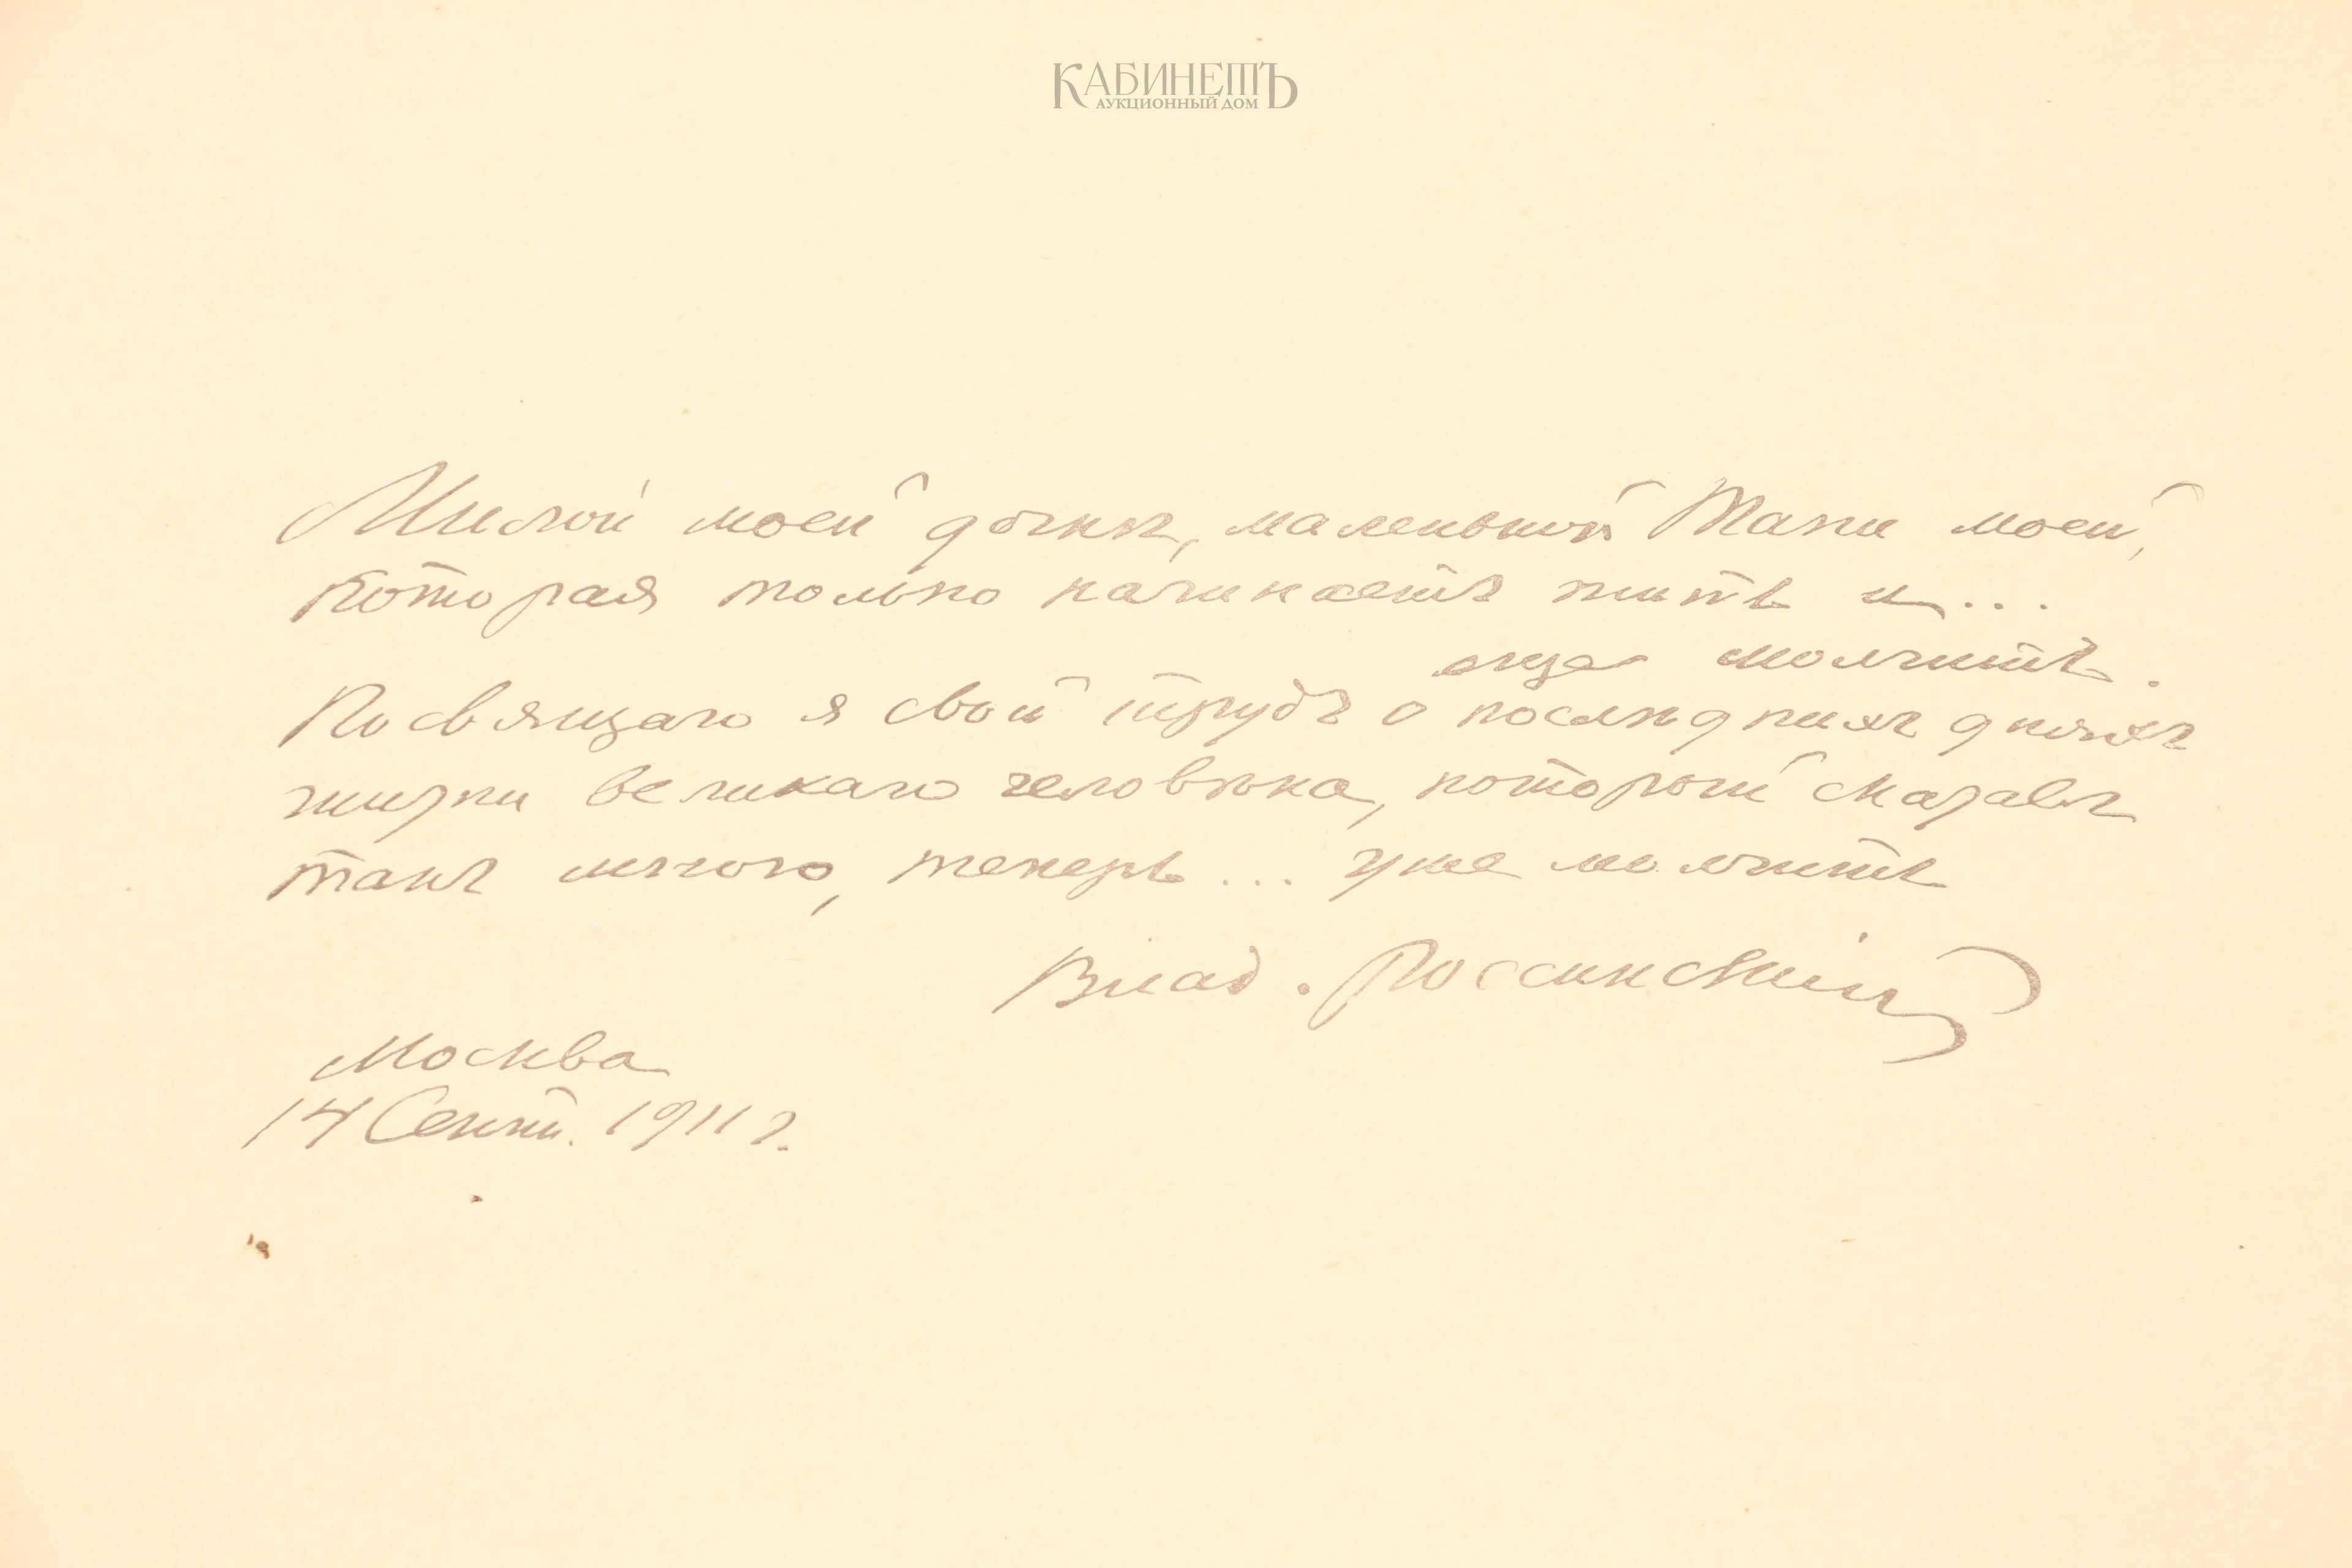 КАБИНЕТЪ
АУКЦИОННЫЙ ДОМ
Милой моей дочкѣ, маленькой Тани моей,
Которая только начинаетъ жить и...
еще молчитъ.
Посвящаю я свой трудъ о послѣднихъ дняхъ
жизни великаго человѣка, который сказавъ
такъ много, теперь... уже молчитъ
Влад. Россинскій
Москва
14 Сент. 1911 г.